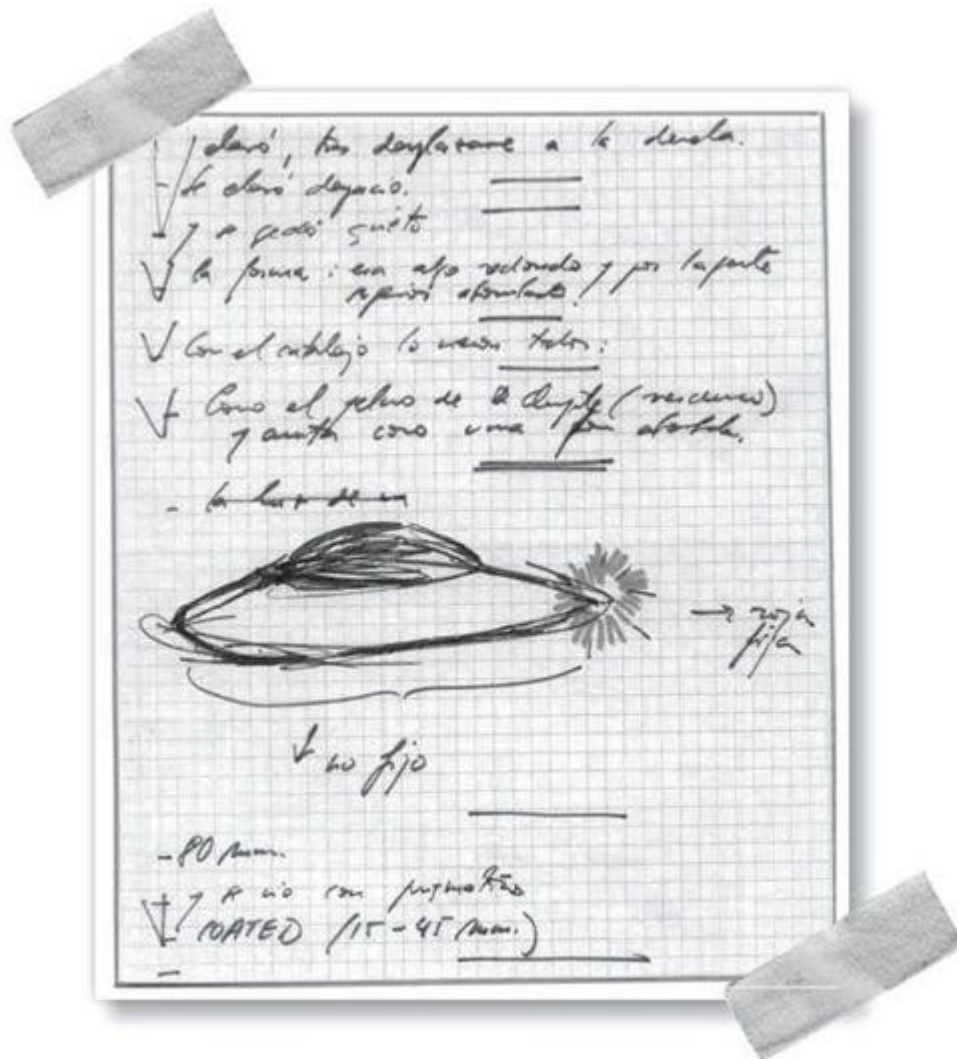 y elevó, tras desplazarse a la derecha.
- Se elevó despacio.
- y se quedó quieto
la forma: era algo redondo y por la parte
superior abombado.
Con el catalejo lo vieron todos:
Como el
y como una
- la luz de un
→ roja
fija
↓ no fijo
- 80 mm.
- y se vio con prismáticos
COATED (15-45 mm.)
-